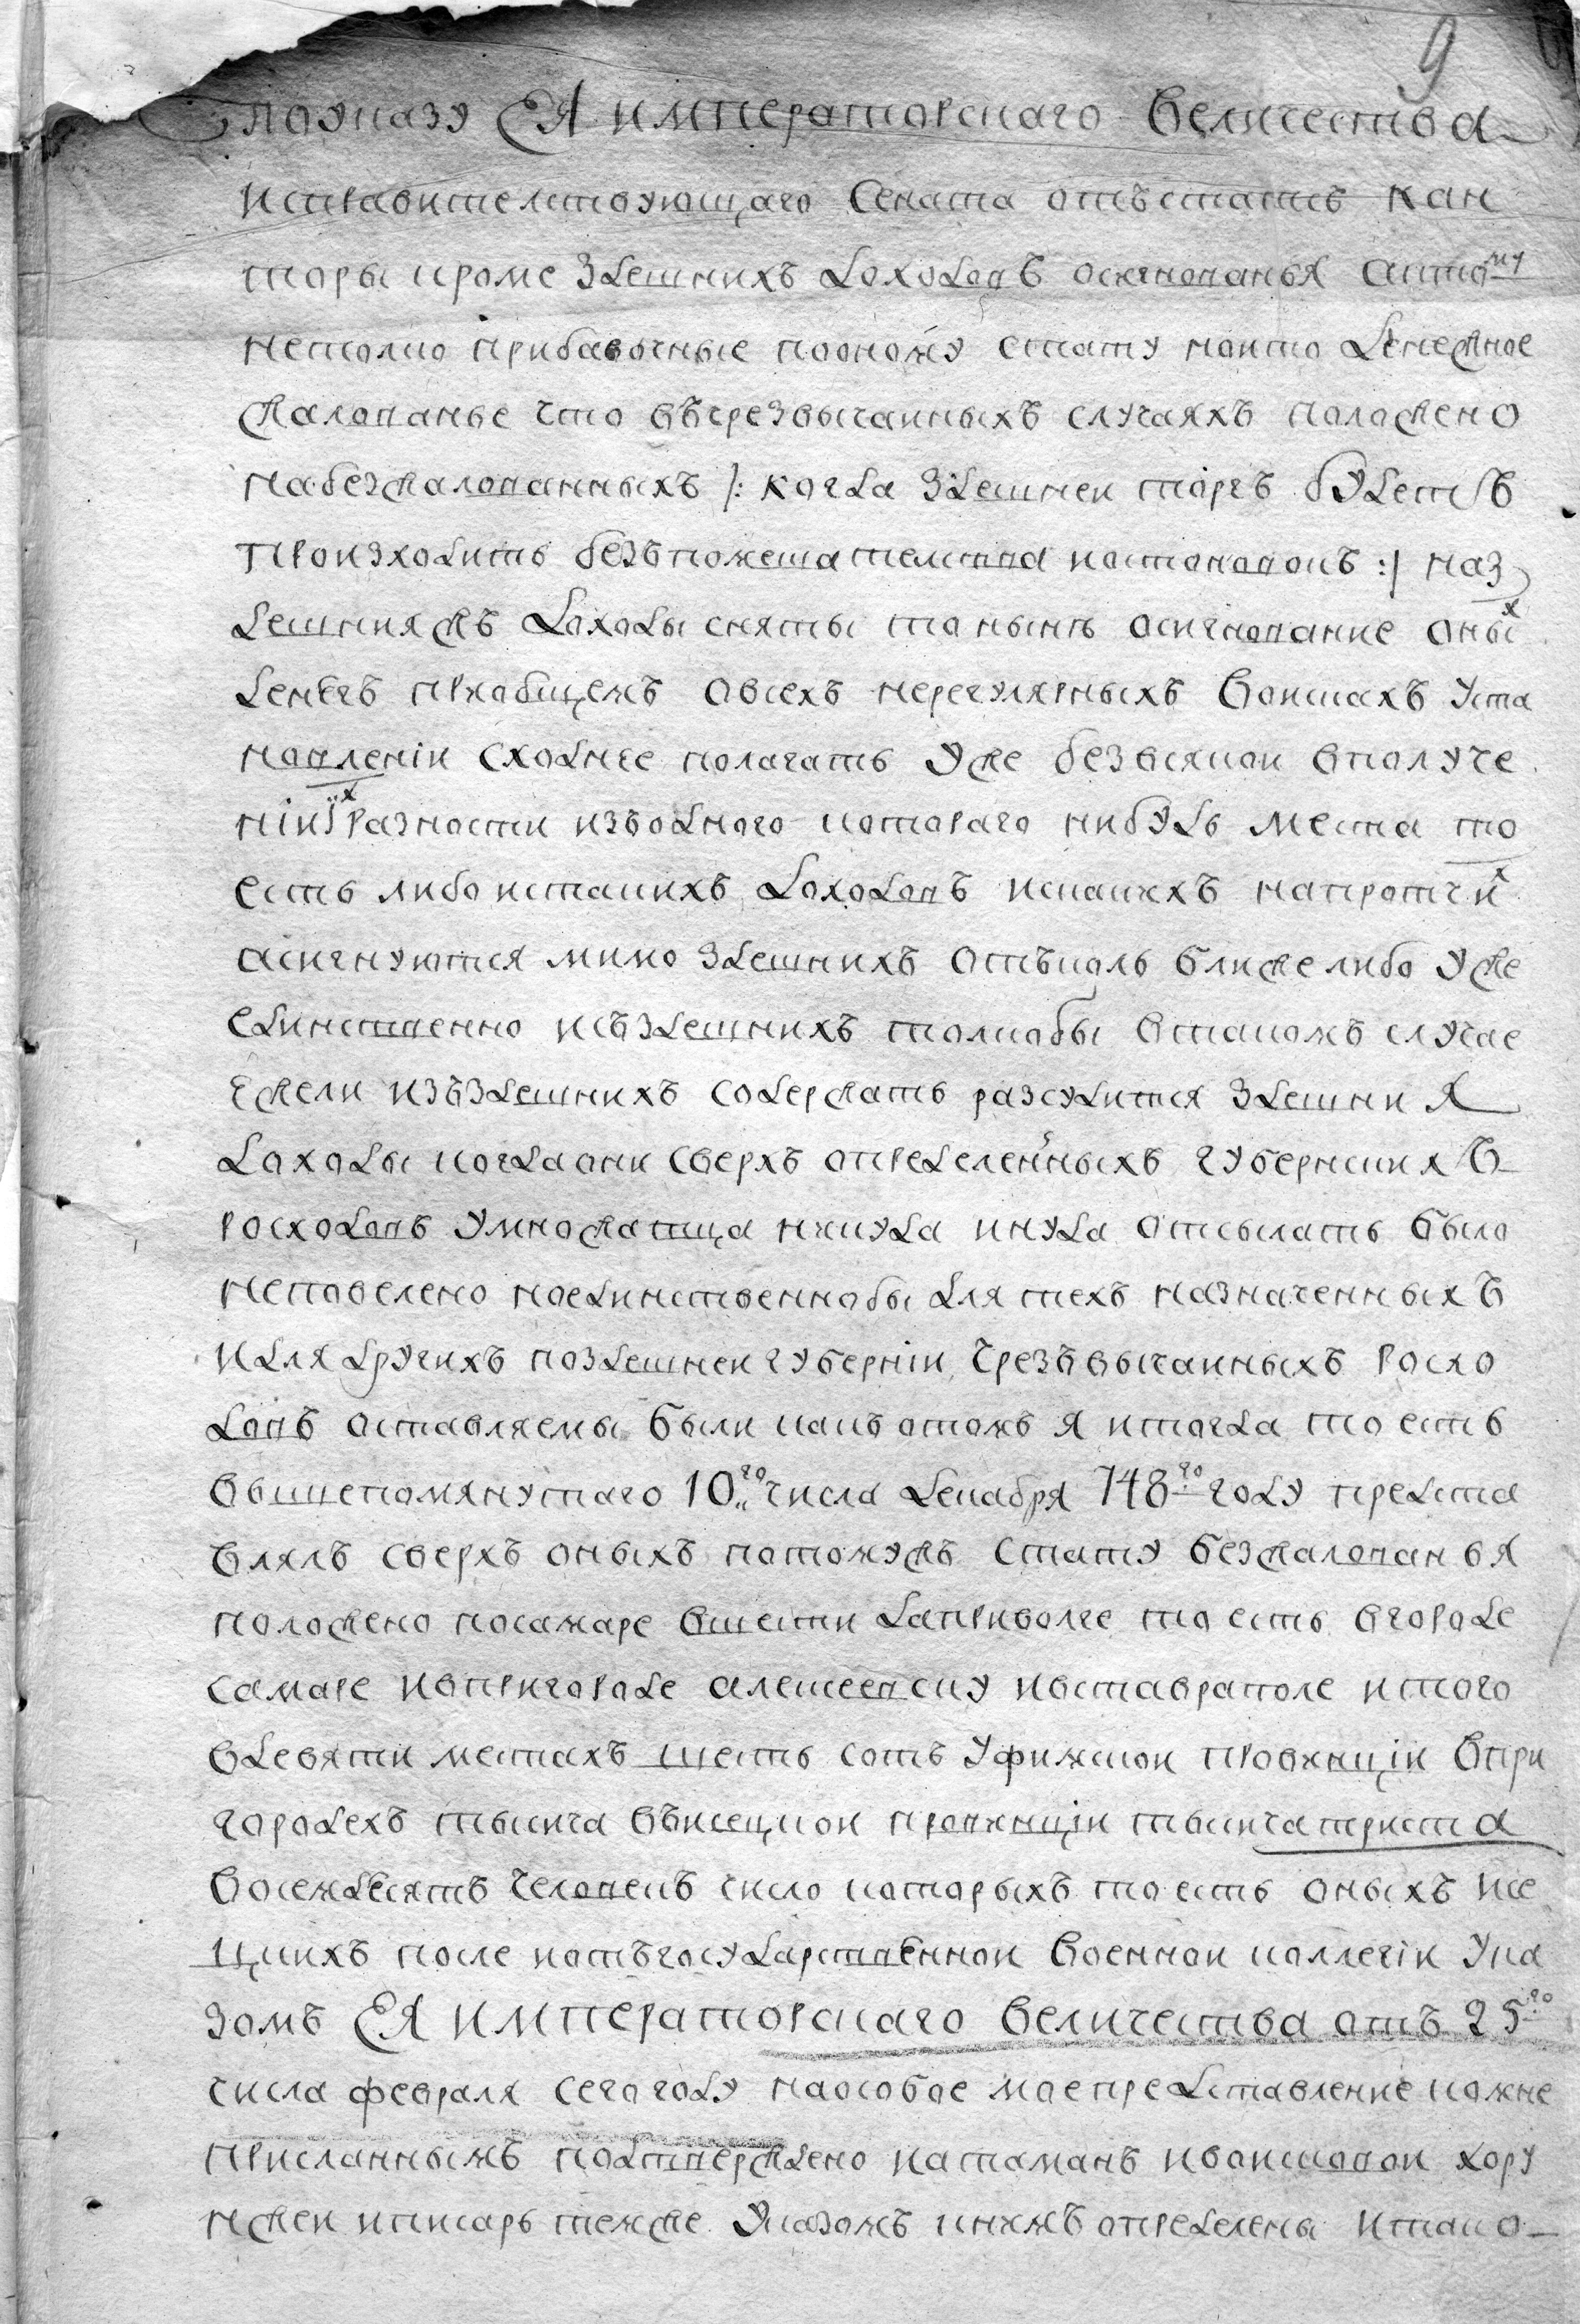 9
по указу ЕЯ императорскаго Величества
и справителствующаго Сената отъ статсъ кан
торы кроме здешнихъ доходовъ асигнованья а ктому
не толко прибавочные по оному стату но и то денежное
жалованье что въ чрезвычаиныхъ случаяхъ положено
на безжалованныхъ /: когда здешнеи торгъ будетъ
происходить безъ помешателства кантоновонъ :/ на з
дешния жъ доходы сняты то нынѣ асигнование оных
денегъ при общемъ о всехъ нерегулярныхъ воискахъ уста
новленіи сходнее полагать уже без всякои в получе
ніи их разности изъ одного котораго нибудь места то
есть либо истацкихъ доходовъ и с каких на протчих
асигнуются мимо здешнихъ отъколь ближе либо уже
единственно и съ здешнихъ толко бы в такомъ случае
ежели изъ здешнихъ содержать разсудится здешния
доходы когда они сверхъ определенныхъ губернскихъ
росходовъ умножатца никуда инуда отсылать было
не повелено но единственно бы для техъ назначенныхъ
и для другихъ по здешнеи губерніи чрезъвычаиныхъ росхо
довъ оставляемы были какъ о томъ я и тогда то есть
вышепомянутаго 10го числа декабря 748го году предста
влялъ сверхъ оныхъ по томужъ стату без жалованья
положено по самаре в шести да при волге то есть в городе
самаре и в пригороде алексеевску и в ставраполе итого
в девяти местахъ шесть сотъ уфимскои провинціи в при
городехъ тысяча въ исецкои провинціи тысяча триста
восемьдесятъ человекъ число которыхъ то есть оныхъ исе
цкихъ после и отъ государственнои военнои коллегіи ука
зомъ ЕЯ императорскаго величества отъ 25го
числа февраля сего году на особое мое представление ко мне
присланнымъ подтверждено и атаманъ и воисковои хору
нжеи и писарь темже указомъ к нимъ определены и тако